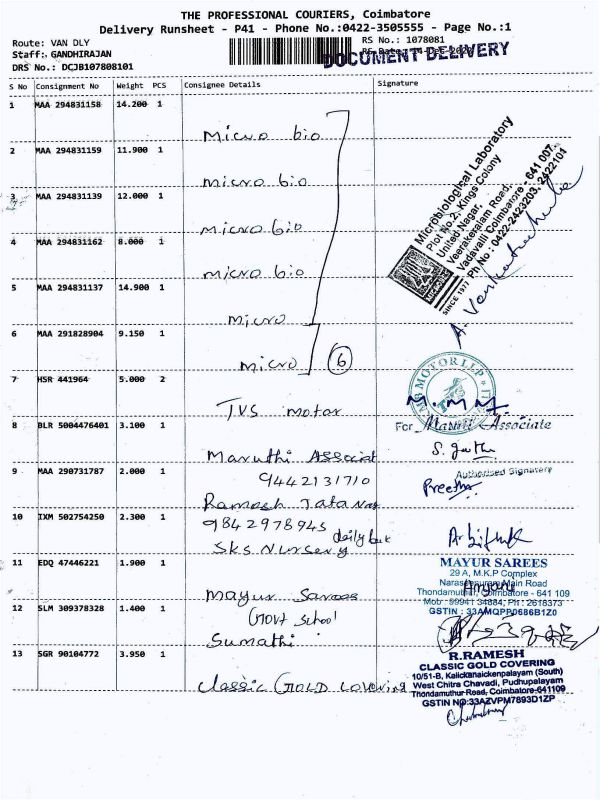 THE PROFESSIONAL COURIERS, Coimbatore
Delivery Runsheet - P41 - Phone No.:0422-3505555 - Page No.:1
Route: VAN DLY
RS No.: 1078081
Staff: GANDHIRAJAN
DOCUMENT DELIVERY
DRS No.: DCJB107808101
S No Consignment No Weight PCS Consignee Details Signature
1 MAA 294831158 14.200 1
micro bio
2 MAA 294831159 11.900 1
micro bio
3 MAA 294831139 12.000 1
micro bio
4 MAA 294831162 8.000 1
micro bio
5 MAA 294831137 14.900 1
micro
6 MAA 291828904 9.150 1
micro 6
7 HSR 441964 5.000 2
TVS motor
8 BLR 5004476401 3.100 1
Maruthi Associat
9442131710
9 MAA 290731787 2.000 1
Ramesh Tata
9842978945
10 IXM 502754250 2.300 1
SKS Nursery
11 EDQ 47446221 1.900 1
mayur Sarees
Govt School
12 SLM 309378328 1.400 1
Sumathi
13 SGR 90104772 3.950 1
classic GOLD covering
Microbiological Laboratory
Plot No.2, Kings Colony
United Nagar,
Veerakeralam Road,
Vadavalli Coimbatore - 641 007.
Ph No : 0422-2423203, 2422101
SINCE 1977
A. Venkatachala
MOTOR LLP
For Maruti Associate
Authorised Signatory
Preetha
MAYUR SAREES
29 A, M.K.P Complex
Narasipuram Main Road
Thondamuthur, Coimbatore - 641 109
Mob : 99941 34884, PH : 2618373
GSTIN : 33AMQPP0686B1Z0
R.RAMESH
CLASSIC GOLD COVERING
10/51-B, Kalickanaickenpalayam (South)
West Chitra Chavadi, Pudhupalayam
Thondamuthur-Road, Coimbatore-641109
GSTIN NO:33AZVPM7893D1ZP